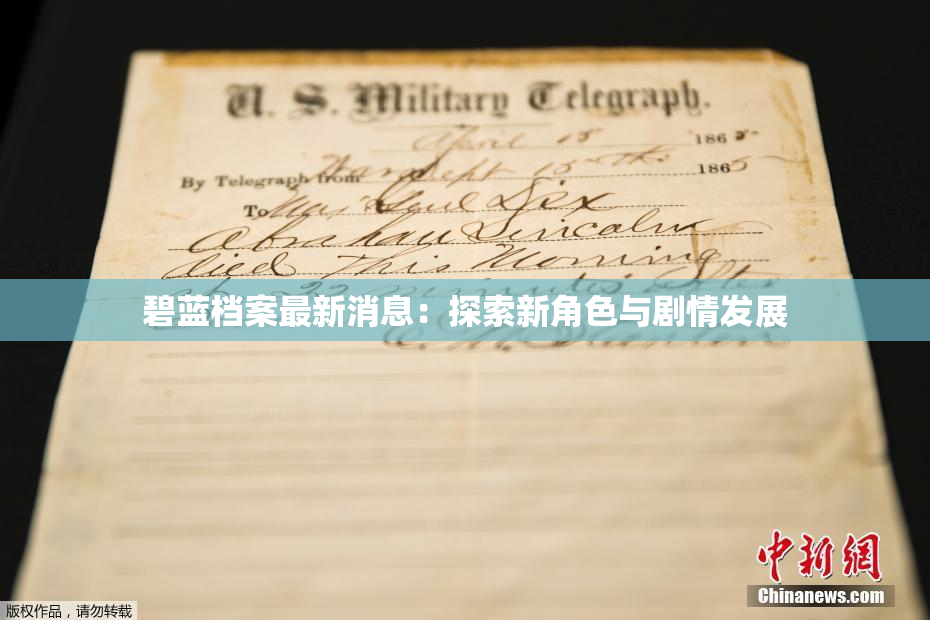 U. S. Military Telegraph.
April 15 1865
By Telegraph from War Dept 15th 1865
To Maj Genl Dix
Abraham Lincoln
died This Morning
22 minutes after
碧蓝档案最新消息：探索新角色与剧情发展
E. M. Stanton
中新网
Chinanews.com
版权作品，请勿转载